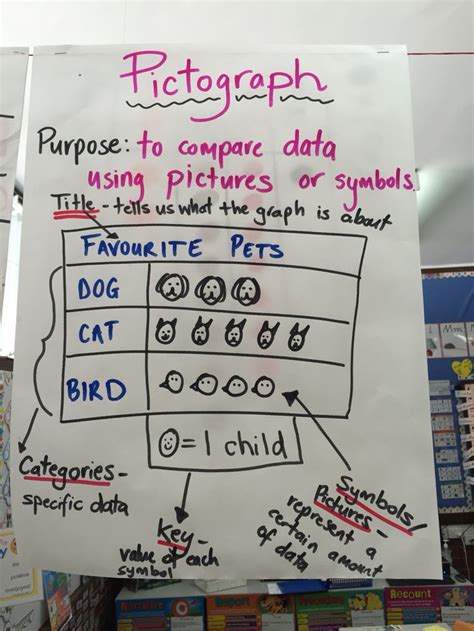 Pictograph
Purpose: to compare data
using pictures or symbols.
Title - tells us what the graph is about
FAVOURITE PETS
DOG
CAT
BIRD
= 1 child
Categories -
specific data
Key -
value of each
symbol
Symbols/
Pictures -
represent a
certain amount
of data
Narrative
Procedure
Recount